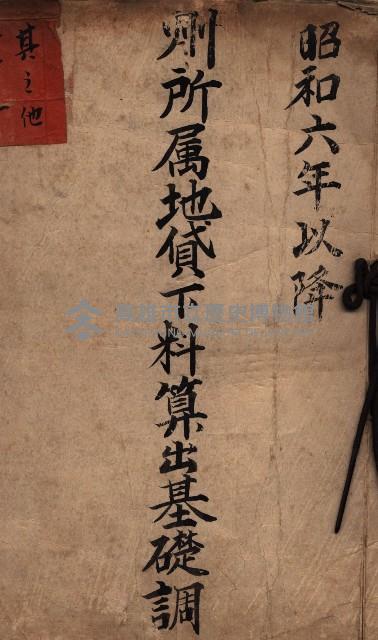 昭和六年以降
州所属地貸下料算出基礎調
其之他
高雄市立歷史博物館